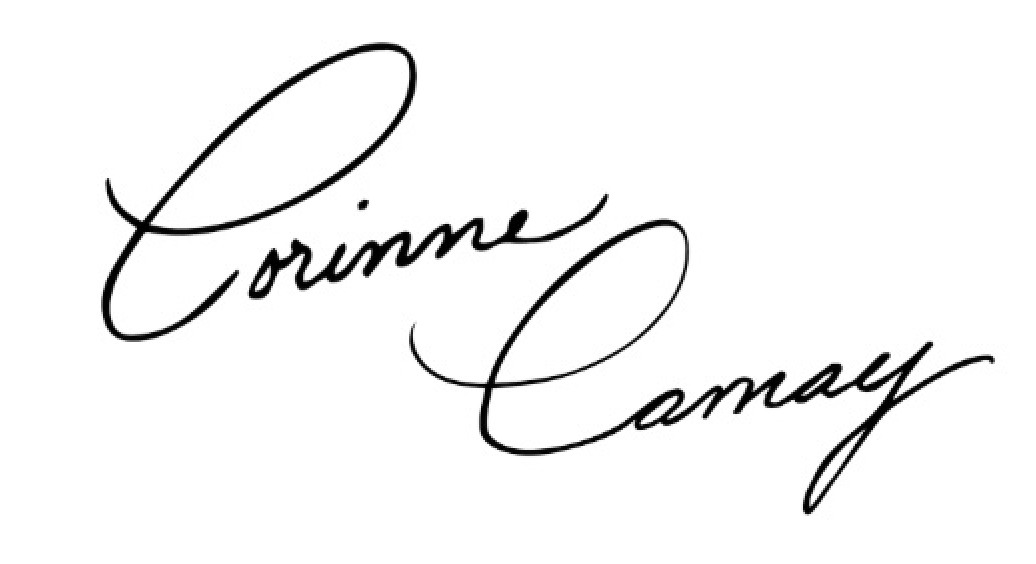 Corinne
Camay